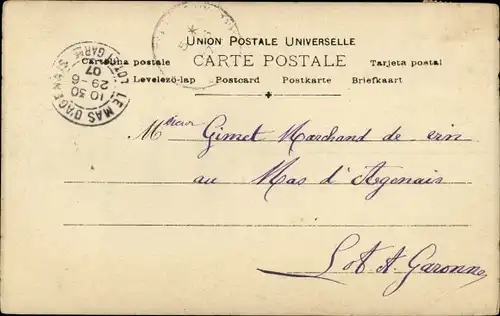 UNION POSTALE UNIVERSELLE
CARTE POSTALE
Cartolina postale
Tarjeta postal
Levelező-lap Postcard Postkarte Briefkaart
LE MAS D'AGENAIS
LOT-ET-GARNE
10 30
29-6
07
Monsieur Gimet Marchand de vin
au Mas d'Agenais
Lot et Garonne